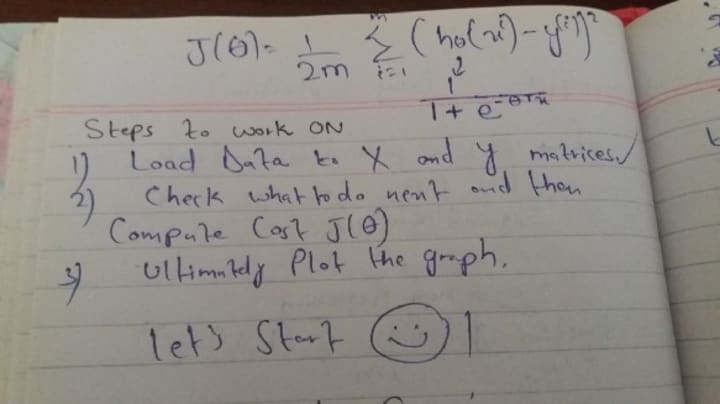 J(θ) = 1/2m Σ i=1 m (hθ(xⁱ) - y⁽ⁱ⁾)²
1 / 1 + e^-θTx
Steps to work ON
1) Load Data to X and y matrices ✓
2) Check what to do next and then
Compute Cost J(θ)
3) Ultimately Plot the graph.
let's Start